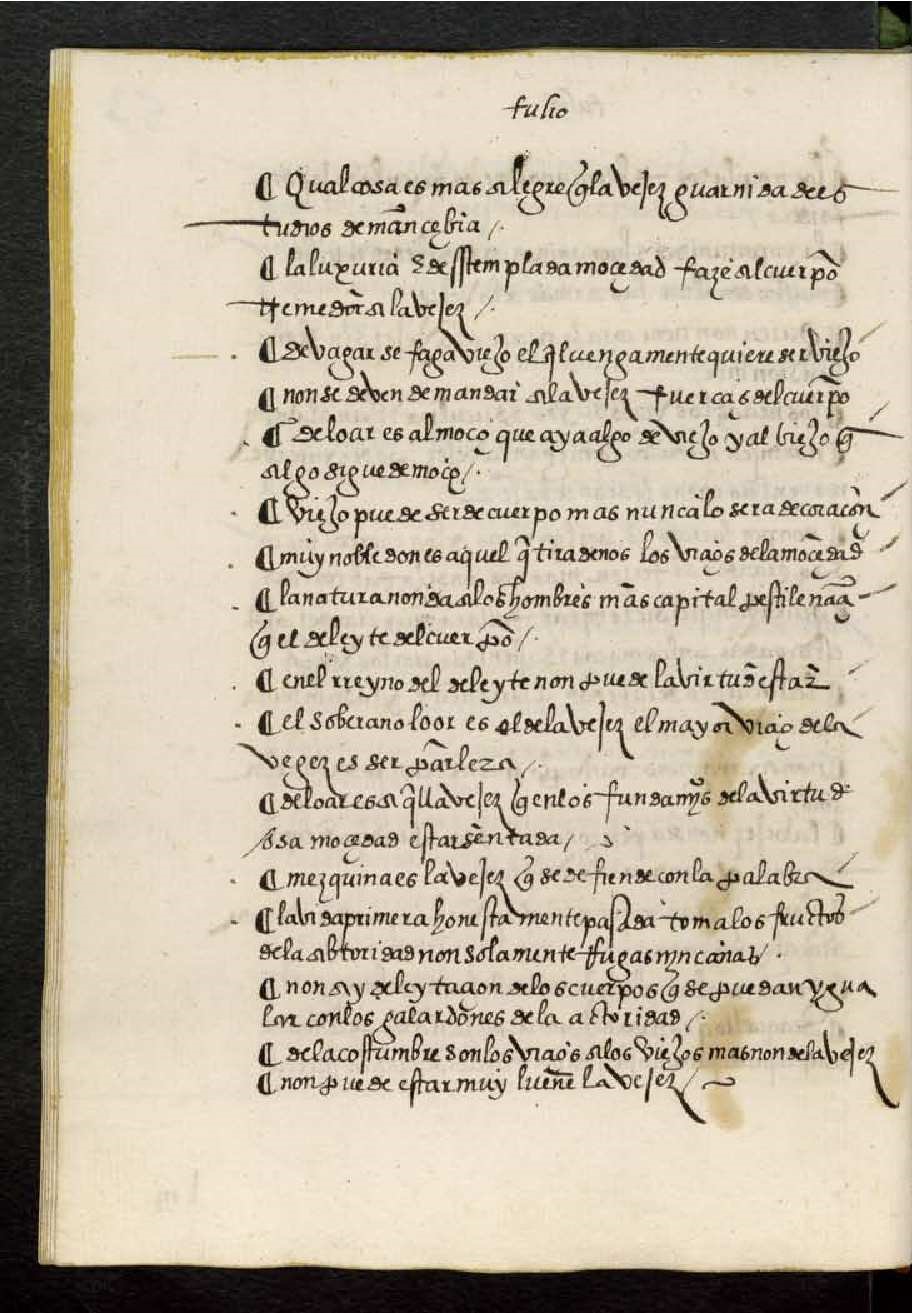 tulio
¶ Qual cosa es mas alegre q̃ la vejez guarnida de es
tudios de mãncebia /.
¶ la luxuria & desstemplada moçedad faze al cuerpõ
tremedor a la vejez /.
¶ de vagar se faga viejo el q̃ luengamente quiere ser viejo
¶ non se deven demandar a la vejez fuerças del cuerpo
¶ de loar es al moço que aya algo de viejo y al viejo q̃
algo sigue de moço /.
¶ viejo puede ser de cuerpo mas nunca lo sera de coraçon
¶ muy noble don es aquel q̃ tira de nos los viçios de la moçedad
¶ la natura non da a los hombres mas capital pestilençia
q̃ el deleyte del cuerpõ /.
¶ en el rreyno del deleyte non puede la virtud estar
¶ el soberano loor es el de la vejez el mayor viçio de la
vegez es ser parlera /.
¶ de loar es aq̃lla vejez q̃ en los fundamỹs de la virtud
dsa moçedad estar sentada /.
¶ mezquina es la vejez q̃ se defiende con la palabra
¶ la vida primera honestamente pasada toma los fructos
de la abtoridad non solamente rrugas nin canas .
¶ non ay deleytaçion de los cuerpos q̃ se puedan ygua
lar con los galardones de la actoridad /.
¶ de la costumbre son los viçios a los viejos mas non de la vejez
¶ non puede estar muy lueñe la vejez /